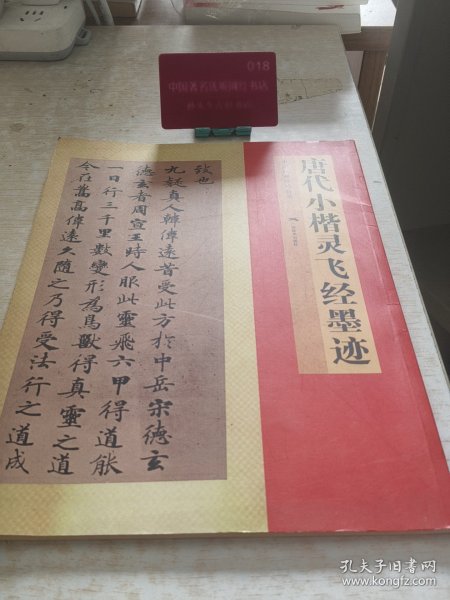 018
唐代小楷灵飞经墨迹
致也
九疑真人韓偉遠昔受此方於中岳宋德玄
德玄者周宣王時人服此靈飛六甲得道能
一日行三千里數變形為鳥獸得真靈之道
今在嵩高偉遠久隨之乃得受法行之道成
孔夫子旧书网
www.kongfz.com